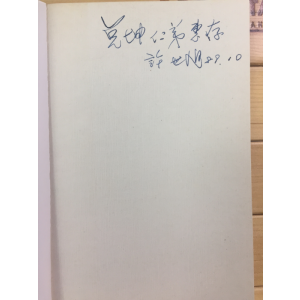 坤仁弟惠存
許世 89.10